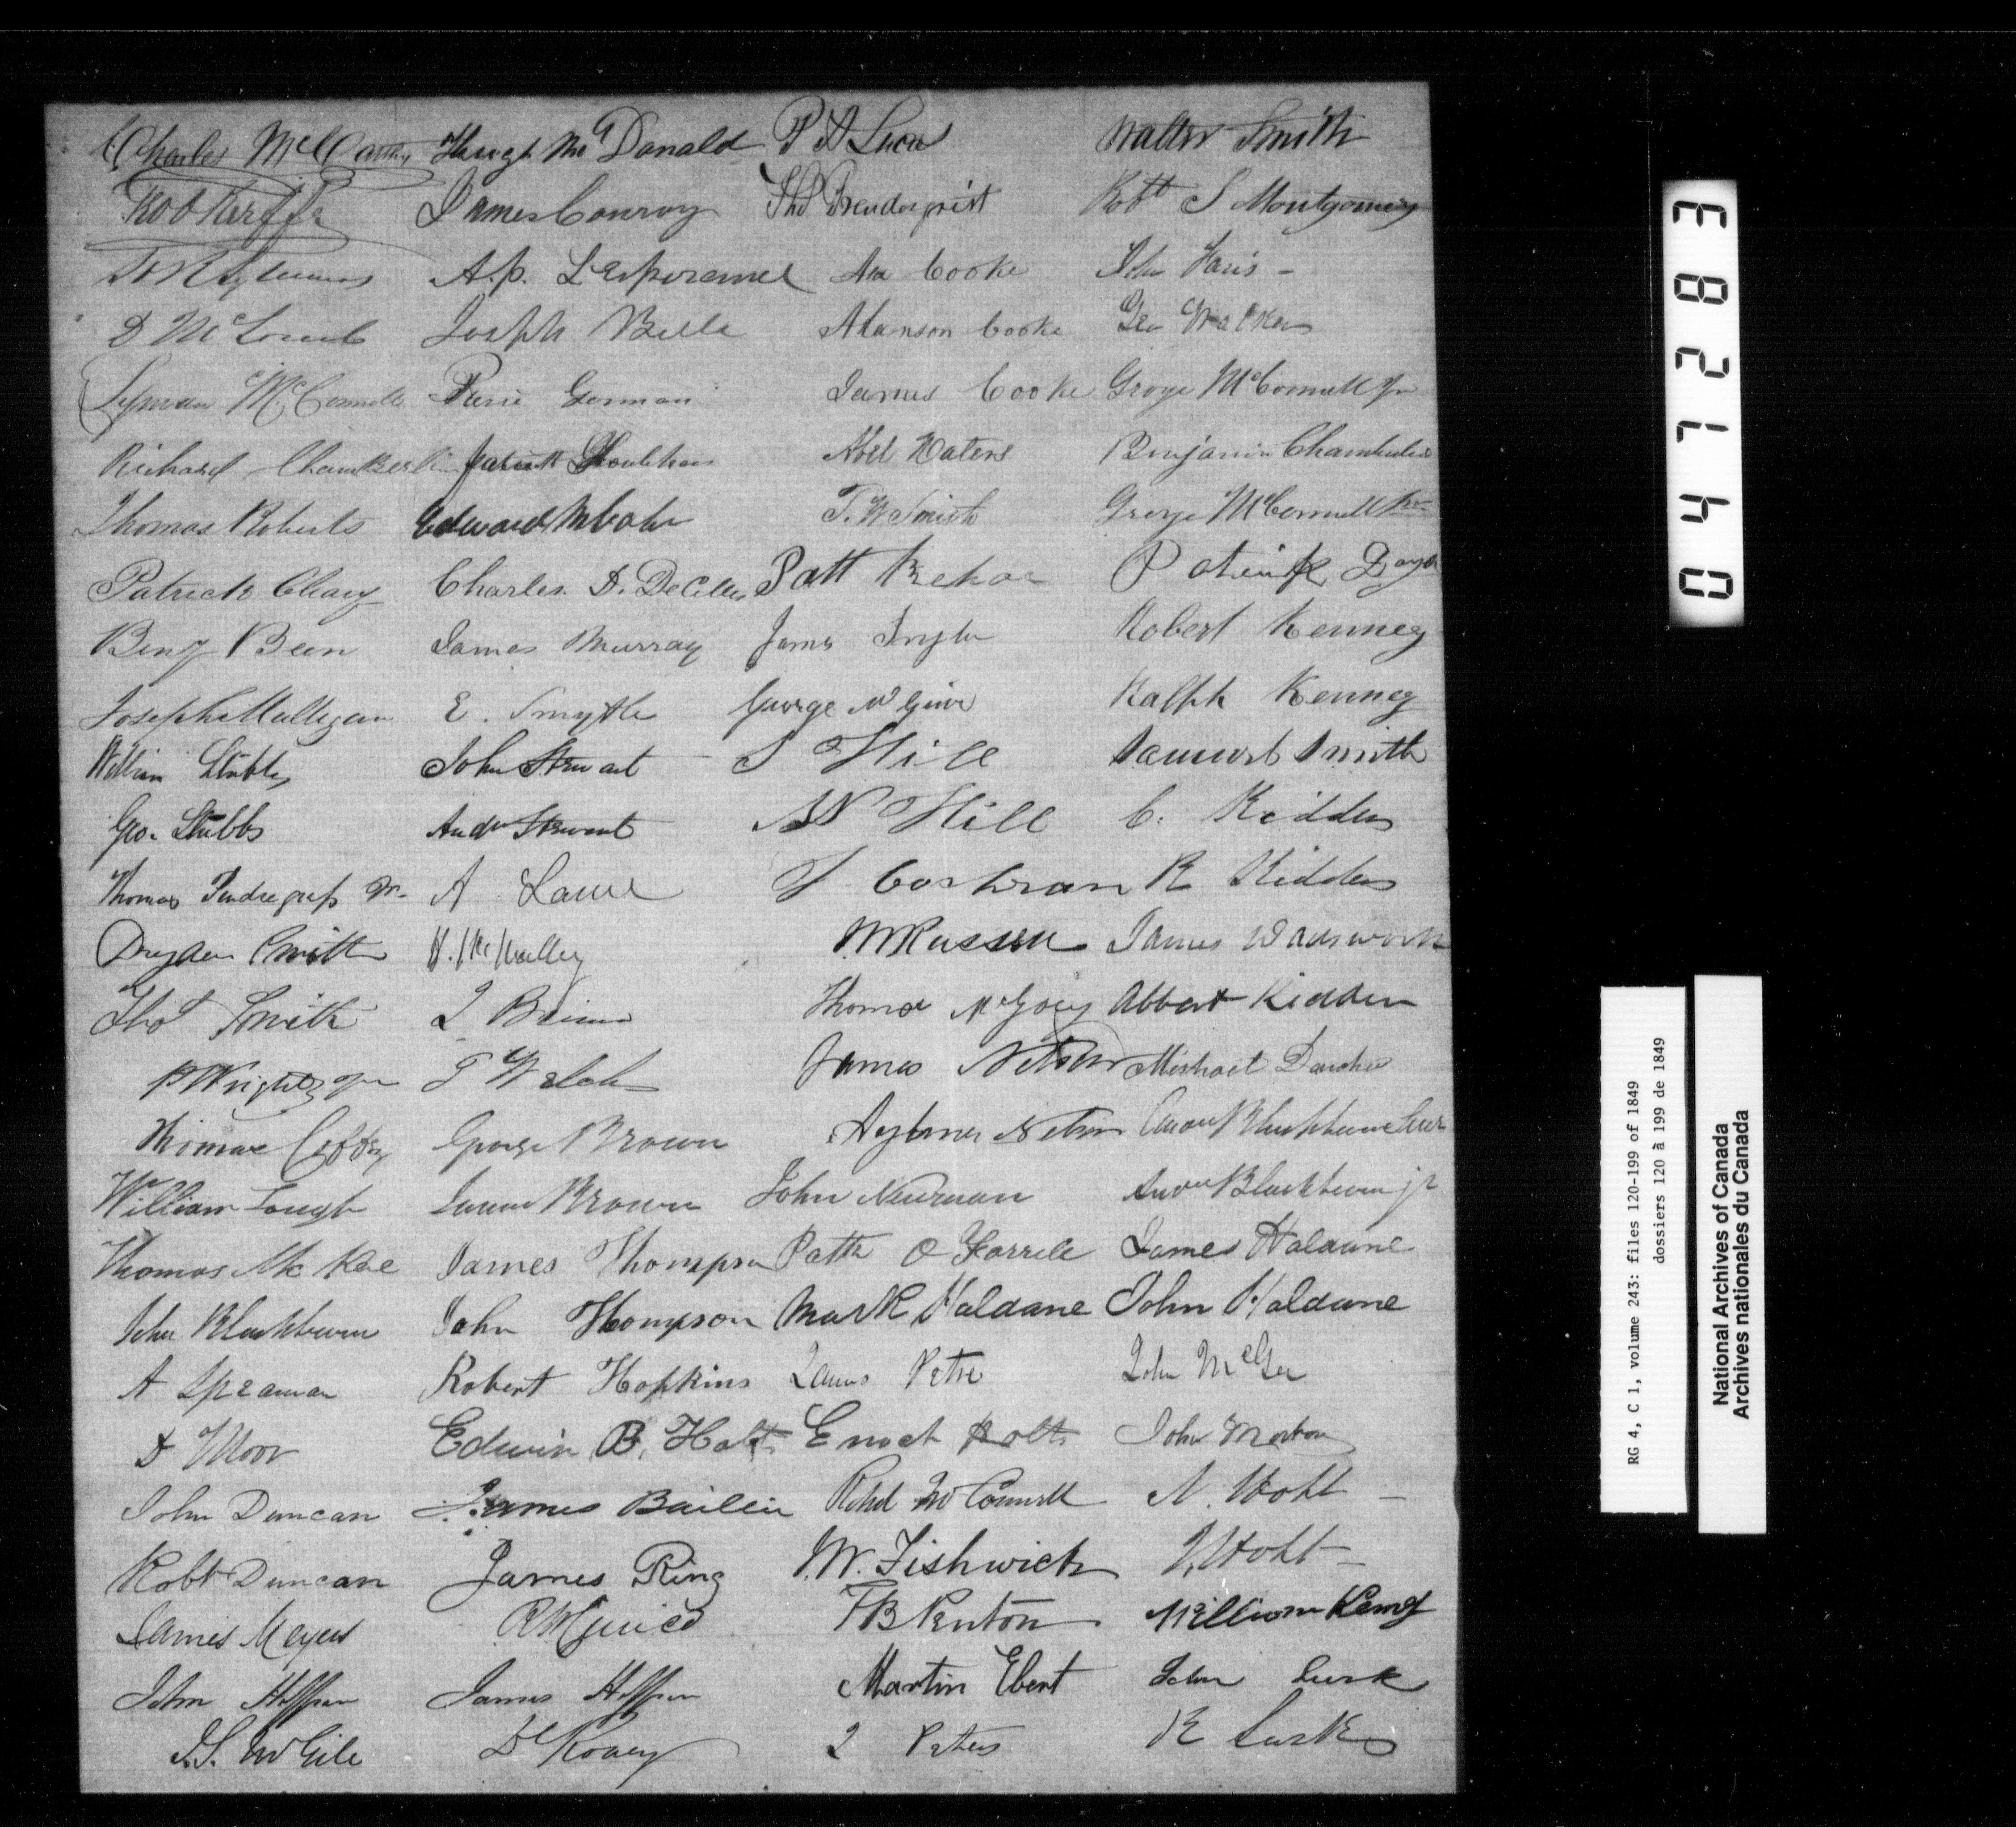 Charles McCarthy Hugh McDonald P A Luca Walter Smith
James Conroy Thos Prendergrist Robt S Montgomery
A.P. Lesperance Asa Cooke John Faris -
D McComb Joseph Belle Alanson Cooke Geo Walker
Lyman McConnell Pierre Germain James Cooke George McConnell Jnr
Richard Chamberlin Abel Waters Benjamin Chamberlin
Thomas Roberts Edward T. W Smith George McConnell Snr
Patrick Cleary Charles. D. DeCelles Patt Kehoe Patrick Doyle
Benj Been James Murray James Inglis Robert Kenney
Joseph Mulligan E. Smythe George Ralph Kenney
William Stubbs John Stewart S Hill Samuel Smith
Geo. Stubbs Andw Stewart W Hill C. Kidder
Thomas Pendregrass Jr- A Lawe J Coshran R Kidder
Dryden Smith H. McNalley W Russell James Wadsworth
Thos Smith Thomas McGoey Abbert Kidder
P Wright Jnr T Welch James Nelson Michael
Thomas George Brown Aylmer Nelson Andw Blackburn Senr
William Lough James Brown John Newman Andw Blackburn jr
Thomas McKee James Thompson Patk O Farrele James Haldane
John Blackburn John Thompson Mark Haldane John Haldane
A Spearman Robert Hopkins James Petre John McGee
D Moor Edwin B. Holt Enoch Holt John Morton
John Duncan James Bailie Richd McConnell N. Holt -
Robt Duncan James Ring J.W. Fishwick J, Holt -
James Meyers F B Renton William King
John Heffron James Heffron Martin Ebert John Lusk
J.S. McGile J Peters R Lusk
047283
RG 4, C 1, volume 243: files 120-199 of 1849
dossiers 120 à 199 de 1849
National Archives of Canada
Archives nationales du Canada